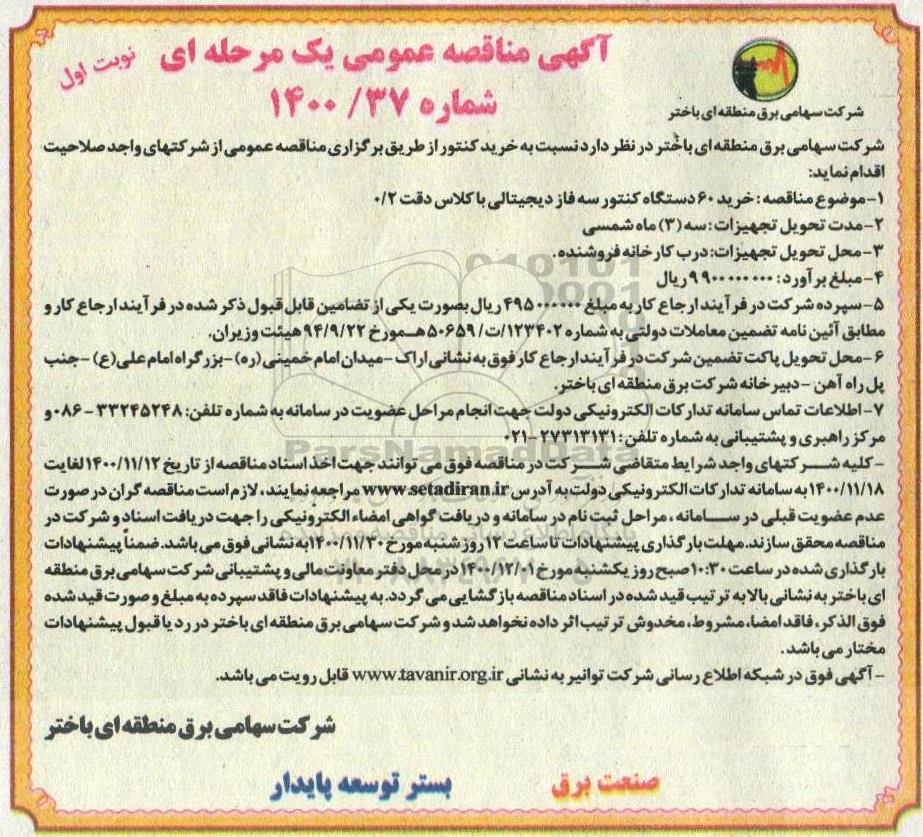 آگهی مناقصه عمومی یک مرحله ای
نوبت اول
شماره ۳۷/ ۱۴۰۰
شرکت سهامی برق منطقه ای باختر
شرکت سهامی برق منطقه ای باختر در نظر دارد نسبت به خرید کنتور از طریق برگزاری مناقصه عمومی از شرکتهای واجد صلاحیت
اقدام نماید:
۱-موضوع مناقصه : خرید ۶۰ دستگاه کنتور سه فاز دیجیتالی با کلاس دقت ۰/۲
۲-مدت تحویل تجهیزات : سه (۳) ماه شمسی
۳-محل تحویل تجهیزات: درب کارخانه فروشنده.
۴-مبلغ برآورد : ۹۹۰۰۰۰۰۰۰۰ ریال
۵-سپرده شرکت در فرآیند ارجاع کار به مبلغ ۴۹۵۰۰۰۰۰۰ ریال بصورت یکی از تضامین قابل قبول ذکر شده در فرآیند ارجاع کار و
مطابق آئین نامه تضمین معاملات دولتی به شماره ۱۲۳۴۰۲/ت/ ۵۰۶۵۹هـ مورخ ۹۴/۹/۲۲ هیئت وزیران.
۶-محل تحویل پاکت تضمین شرکت در فرآیند ارجاع کار فوق به نشانی اراک -میدان امام خمینی (ره) -بزرگراه امام علی(ع) -جنب
پل راه آهن -دبیرخانه شرکت برق منطقه ای باختر.
۷-اطلاعات تماس سامانه تدارکات الکترونیکی دولت جهت انجام مراحل عضویت در سامانه به شماره تلفن: ۳۳۲۴۵۲۴۸ -۰۸۶ و
مرکز راهبری و پشتیبانی به شماره تلفن: ۲۷۳۱۳۱۳۱ -۰۲۱
-کلیه شرکتهای واجد شرایط متقاضی شرکت در مناقصه فوق می توانند جهت اخذ اسناد مناقصه از تاریخ ۱۴۰۰/۱۱/۱۲ لغایت
۱۴۰۰/۱۱/۱۸ به سامانه تدارکات الکترونیکی دولت به آدرس www.setadiran.ir مراجعه نمایند، لازم است مناقصه گران در صورت
عدم عضویت قبلی در سامانه ، مراحل ثبت نام در سامانه و دریافت گواهی امضاء الکترونیکی را جهت دریافت اسناد و شرکت در
مناقصه محقق سازند. مهلت بارگذاری پیشنهادات تا ساعت ۱۲ روز شنبه مورخ ۱۴۰۰/۱۱/۳۰ به نشانی فوق می باشد. ضمنا پیشنهادات
بارگذاری شده در ساعت ۱۰:۳۰ صبح روز یکشنبه مورخ ۱۴۰۰/۱۲/۰۱ در محل دفتر معاونت مالی و پشتیبانی شرکت سهامی برق منطقه
ای باختر به نشانی بالا به ترتیب قید شده در اسناد مناقصه بازگشایی می گردد. به پیشنهادات فاقد سپرده به مبلغ و صورت قید شده
فوق الذکر، فاقد امضا، مشروط، مخدوش ترتیب اثر داده نخواهد شد و شرکت سهامی برق منطقه ای باختر در رد یا قبول پیشنهادات
مختار می باشد.
-آگهی فوق در شبکه اطلاع رسانی شرکت توانیر به نشانی www.tavanir.org.ir قابل رویت می باشد.
شرکت سهامی برق منطقه ای باختر
صنعت برق
بستر توسعه پایدار
ParsNamadData